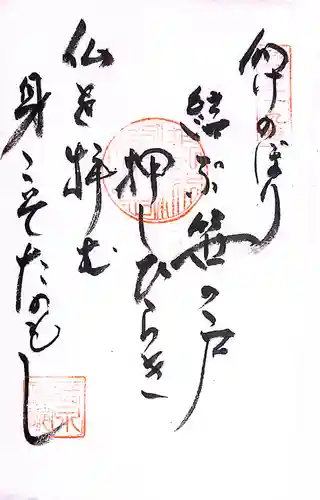 分けのぼり
結ぶ笹の戸
押しひらき
仏を拝む
身こそたのもし